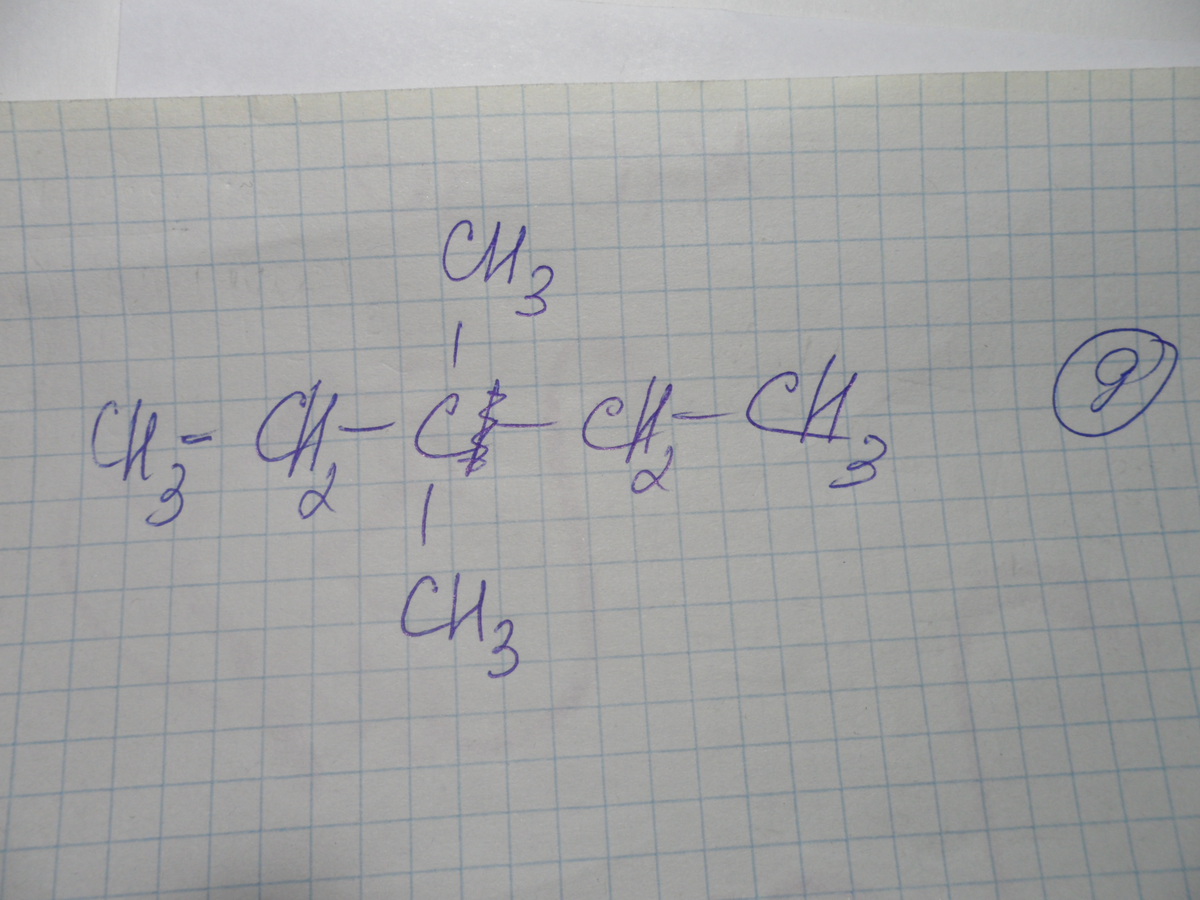 CH3
|
CH3 - CH2 - C - CH2 - CH3
|
CH3